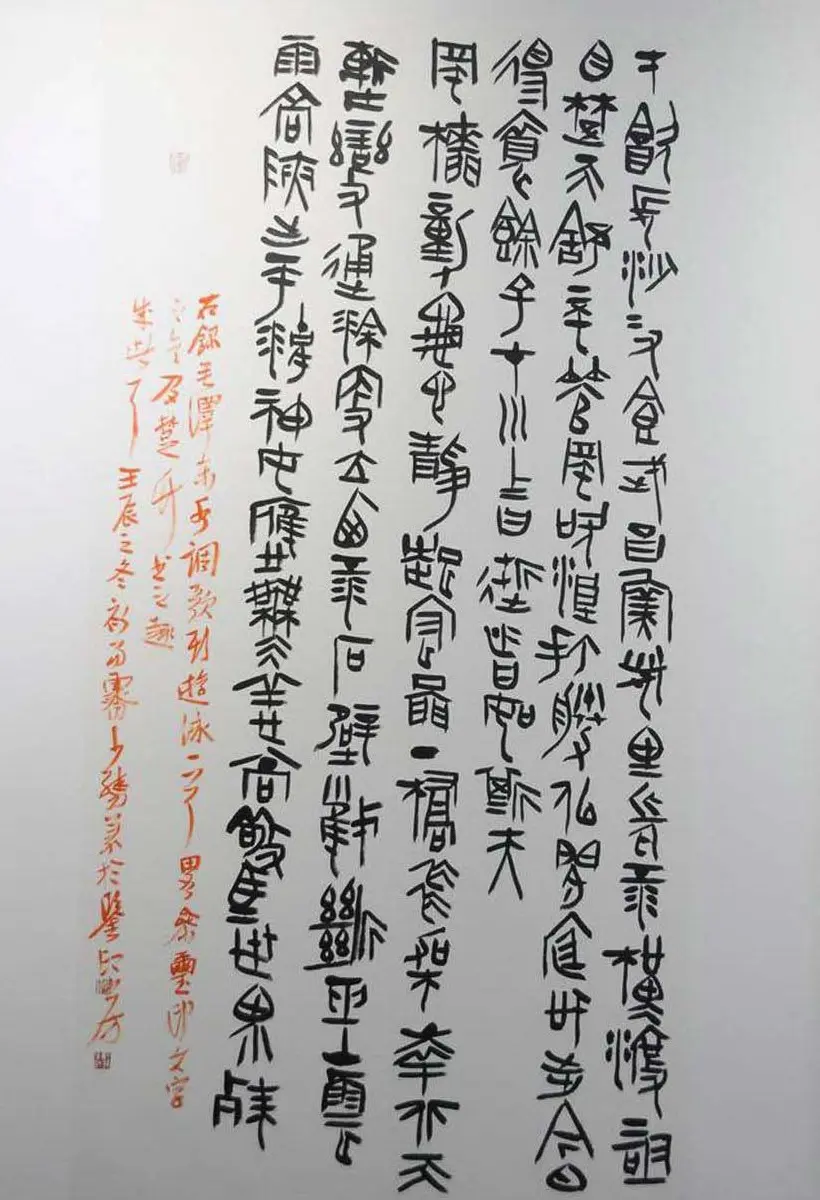 才飲長沙水又食武昌魚萬里長江橫渡極
目楚天舒不管風吹浪打勝似閒庭信步今日
得寬餘子在川上曰逝者如斯夫
風檣動龜蛇靜起宏圖一橋飛架南北天
塹變通途更立西江石壁截斷巫山雲
雨高峽出平湖神女應無恙當驚世界殊
右錄毛澤東水調歌頭游泳一首畧參璽印文字
及楚竹書之趣
壬辰之冬初雨霽於鑒印山房